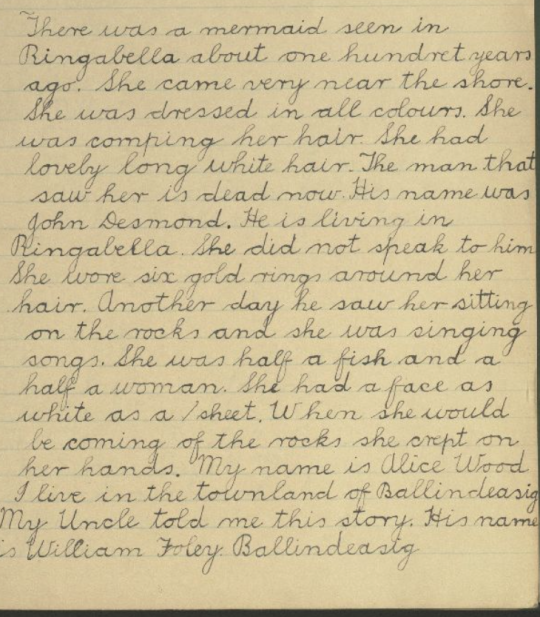 There was a mermaid seen in
Ringabella about one hundret years
ago. She came very near the shore.
She was dressed in all colours. She
was comping her hair. She had
lovely long white hair. The man that
saw her is dead now. His name was
John Desmond. He is living in
Ringabella. She did not speak to him
She wore six gold rings around her
hair. Another day he saw her sitting
on the rocks and she was singing
songs. She was half a fish and a
half a woman. She had a face as
white as a /sheet. When she would
be coming of the rocks she crept on
her hands. My name is Alice Wood
I live in the townland of Ballindeasig
My Uncle told me this story. His name
is William Foley. Ballindeasig